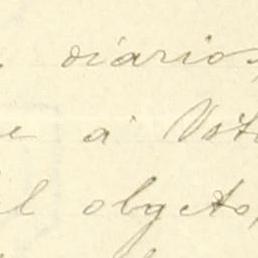 diarios,
e á Vot
l obgeto,